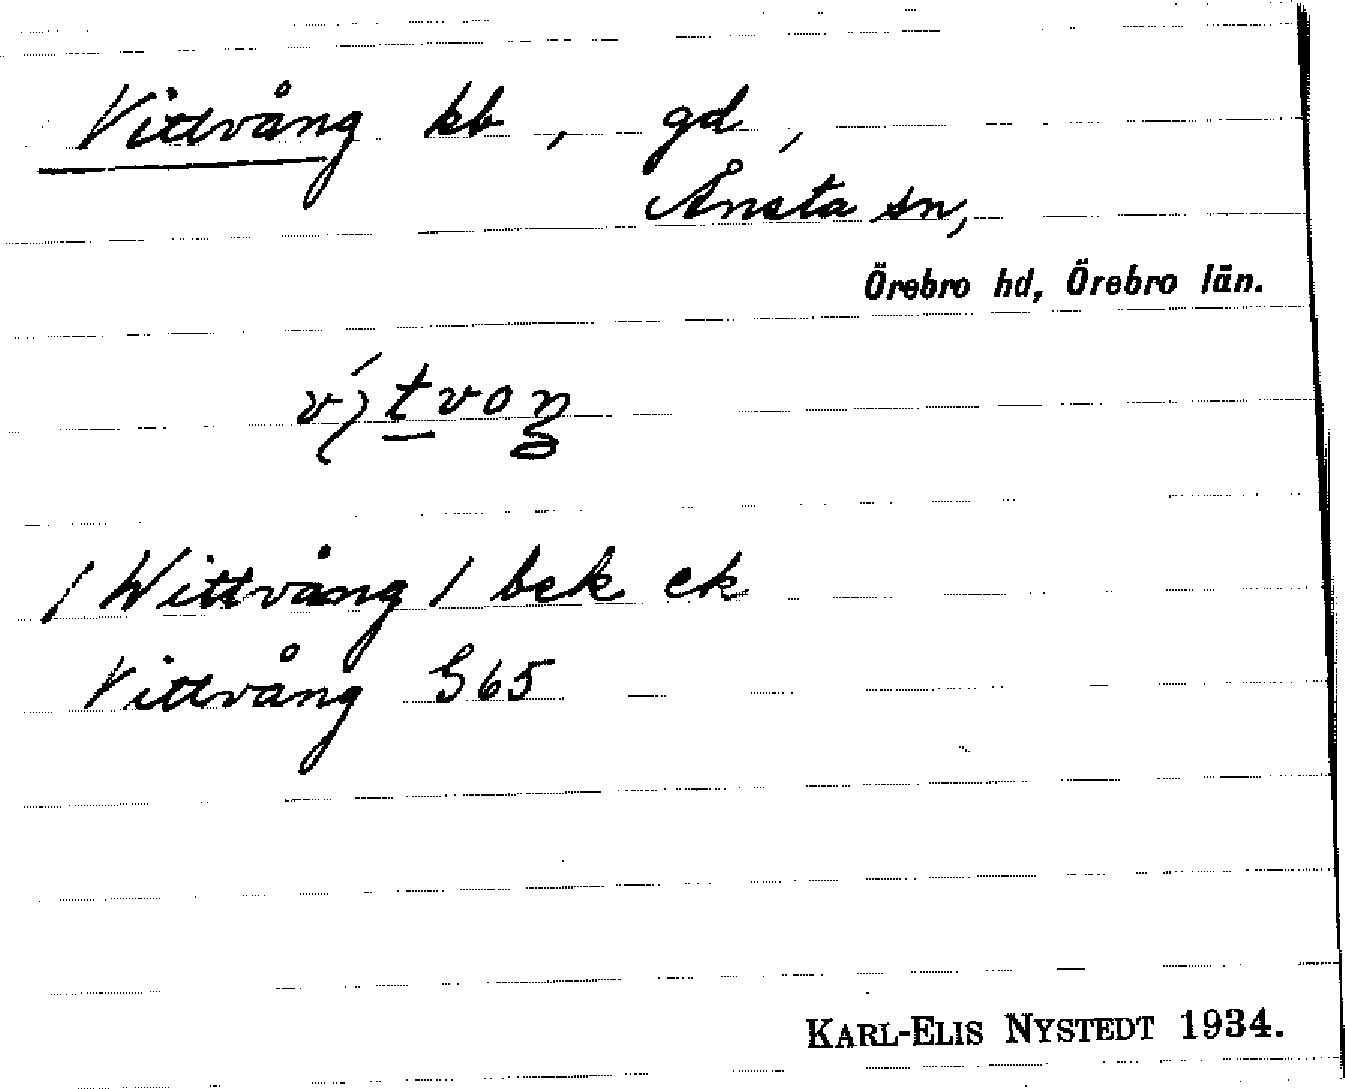 Vittvång kb, gd,
Ånsta sn,
Örebro hd, Örebro län.
/Wittvång/ bek ek
Vittvång G65
KARL-ELIS NYSTEDT 1934.